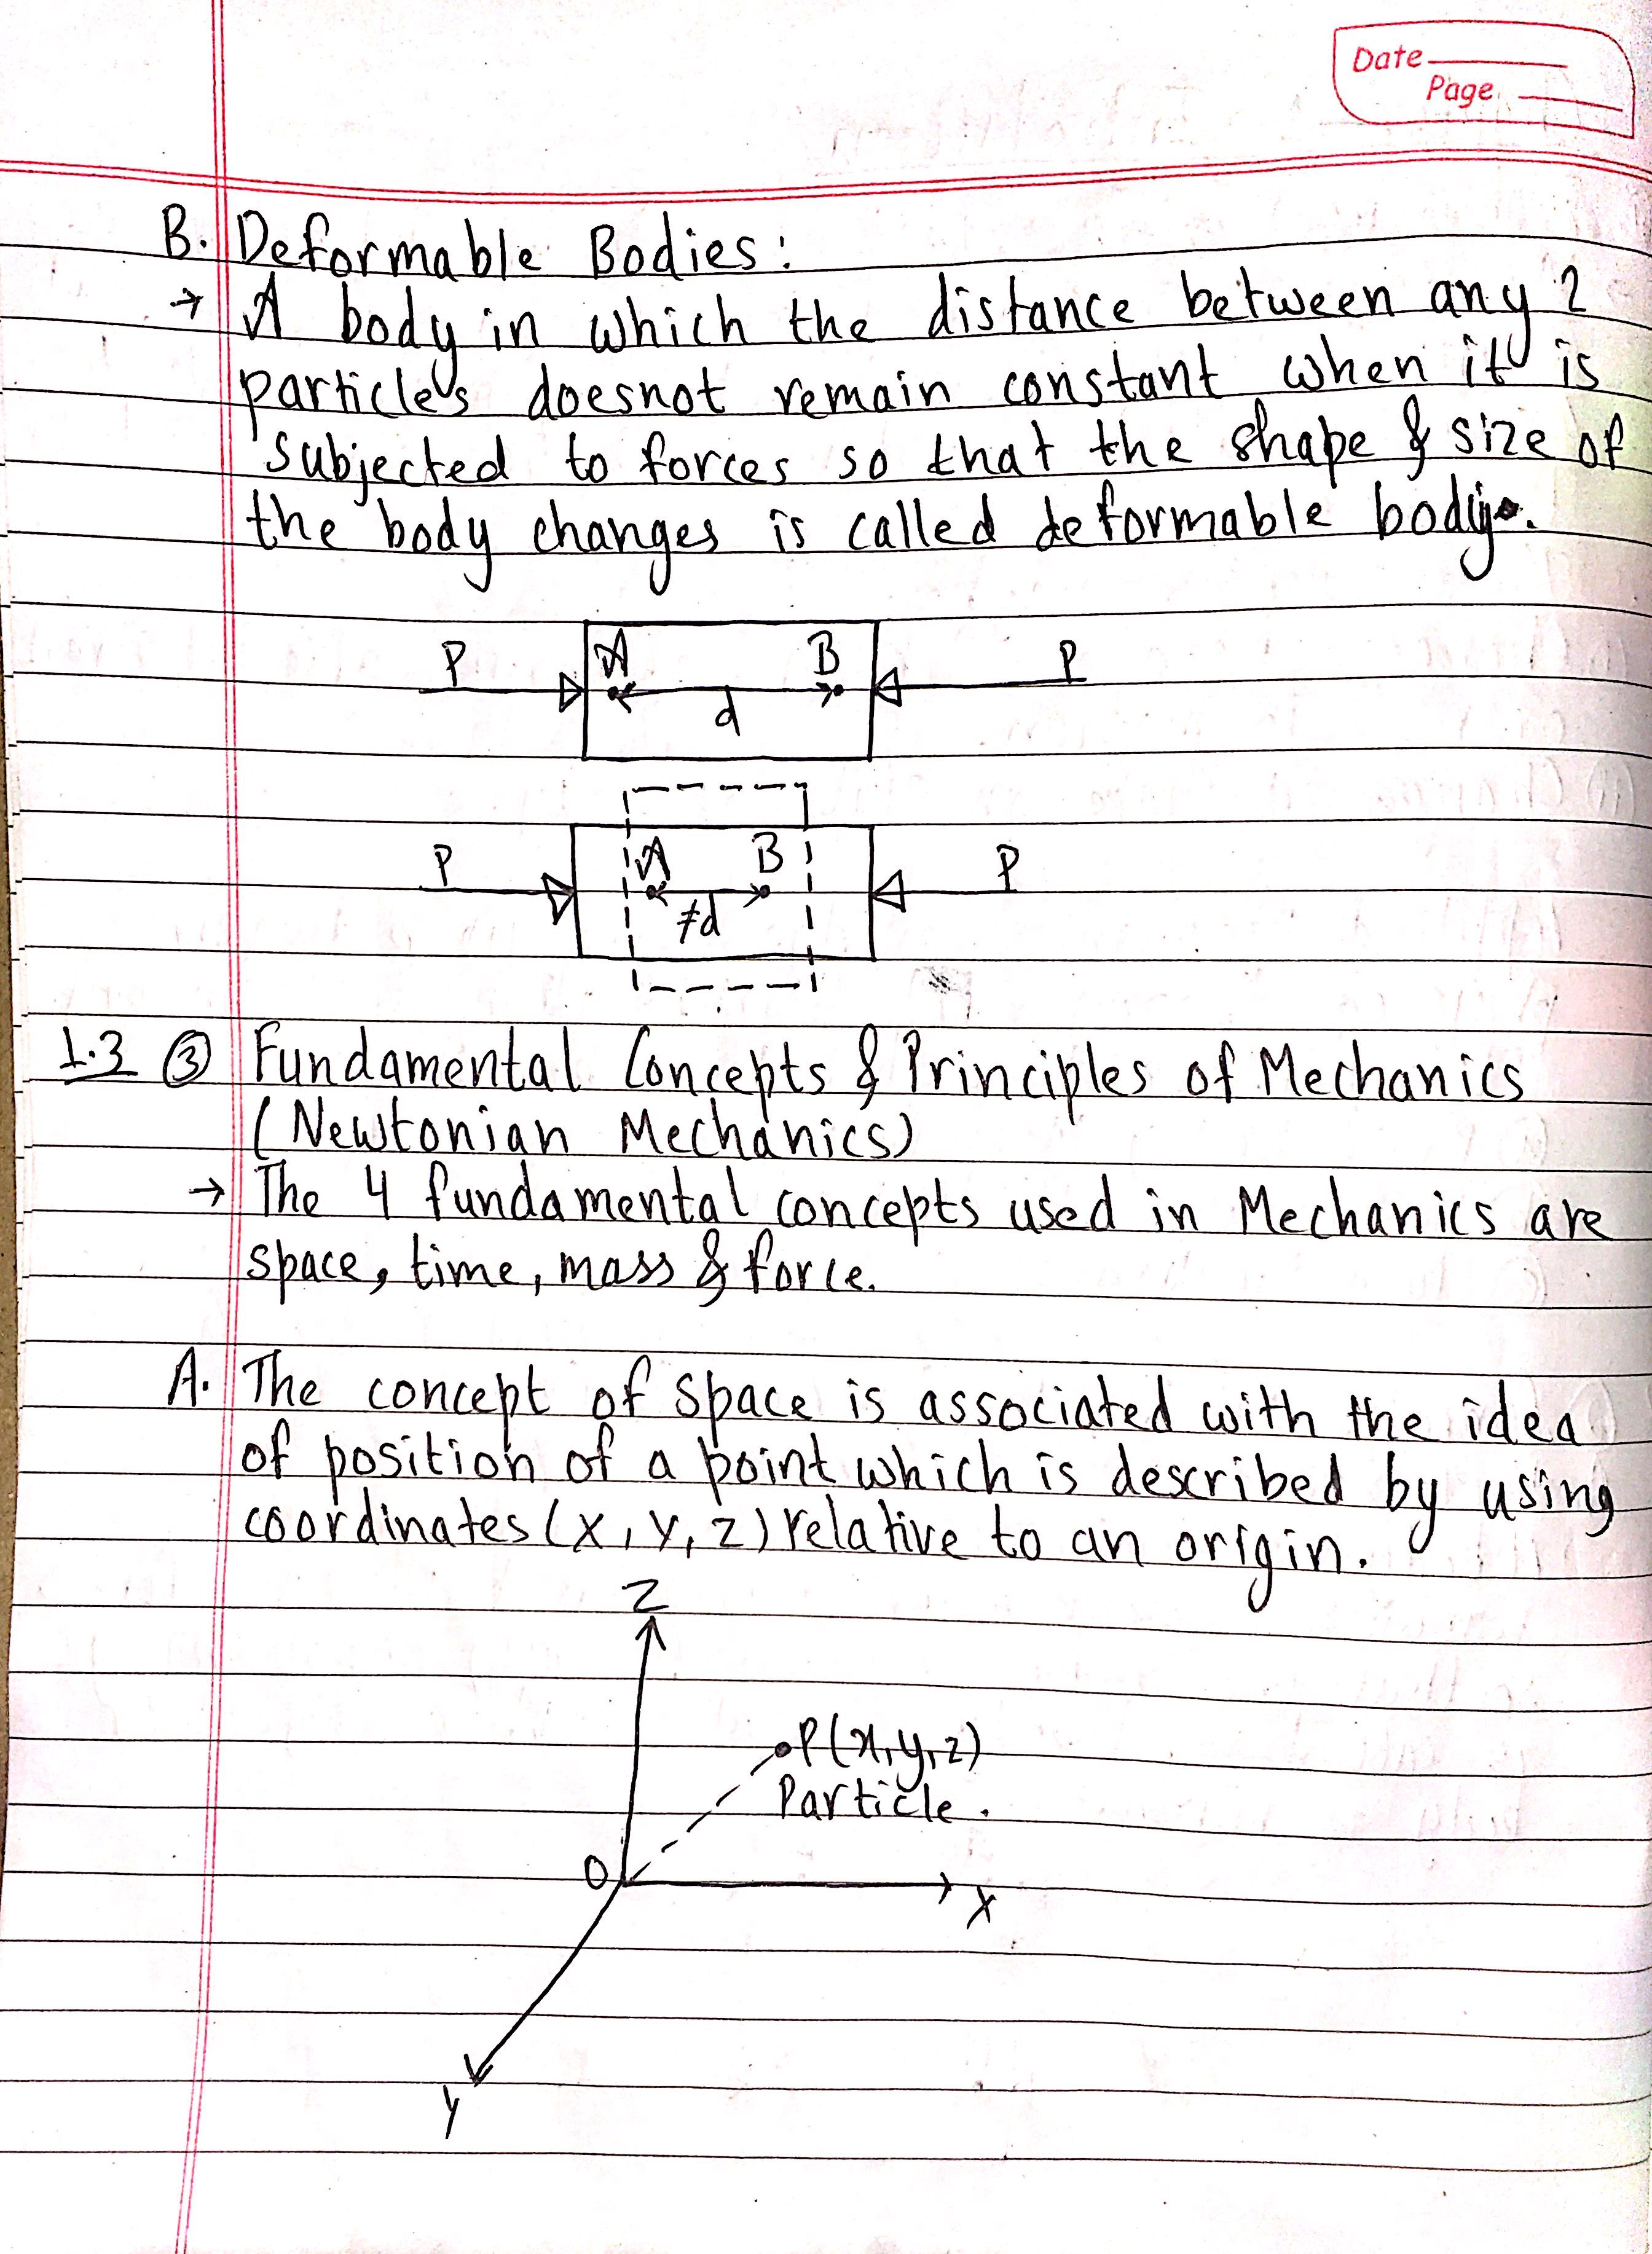 Date
Page
B. Deformable Bodies:
→ A body in which the distance between any 2
particles doesnot remain constant when it is
subjected to forces so that the shape & size of
the body changes is called deformable body.
P A B P
d
P A B P
≠d
1.3 ③ Fundamental Concepts & Principles of Mechanics
(Newtonian Mechanics)
→ The 4 fundamental concepts used in Mechanics are
space, time, mass & force.
A. The concept of space is associated with the idea
of position of a point which is described by using
coordinates (x, y, z) relative to an origin.
Z
P(x, y, z)
Particle.
O
X
Y